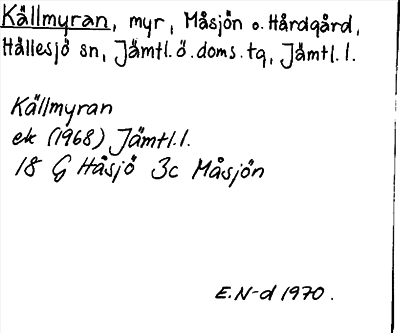 Källmyran, myr, Måsjön o. Hårdgård,
Hällesjö sn, Jämtl. ö. doms. tg, Jämtl. l.
Källmyran
ek (1968) Jämtl. l.
18 G Håsjö 3c Måsjön
E. N-d 1970.